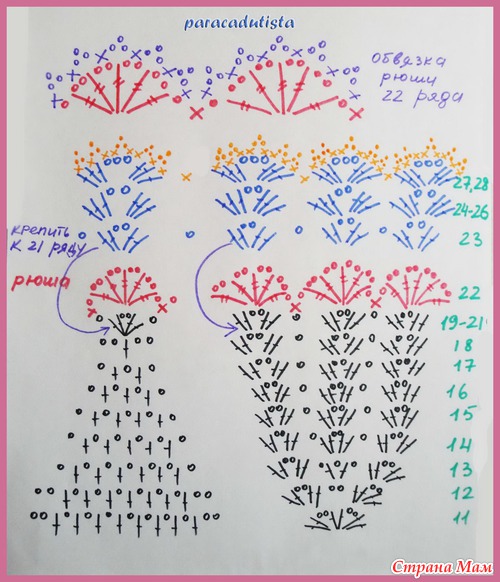 paracadutista
обвязка
рюши
22 ряда
27,28
24-26
крепить
к 21 ряду
23
рюша
22
19-21
18
17
16
15
14
13
12
11
Страна Мам